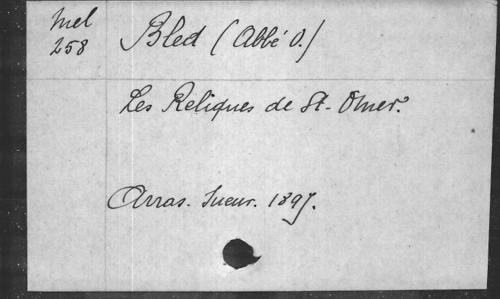 Mel
258
Bled (Abbé O.)
Les Reliques de St-Omer.
Arras. Sueur. 1897.